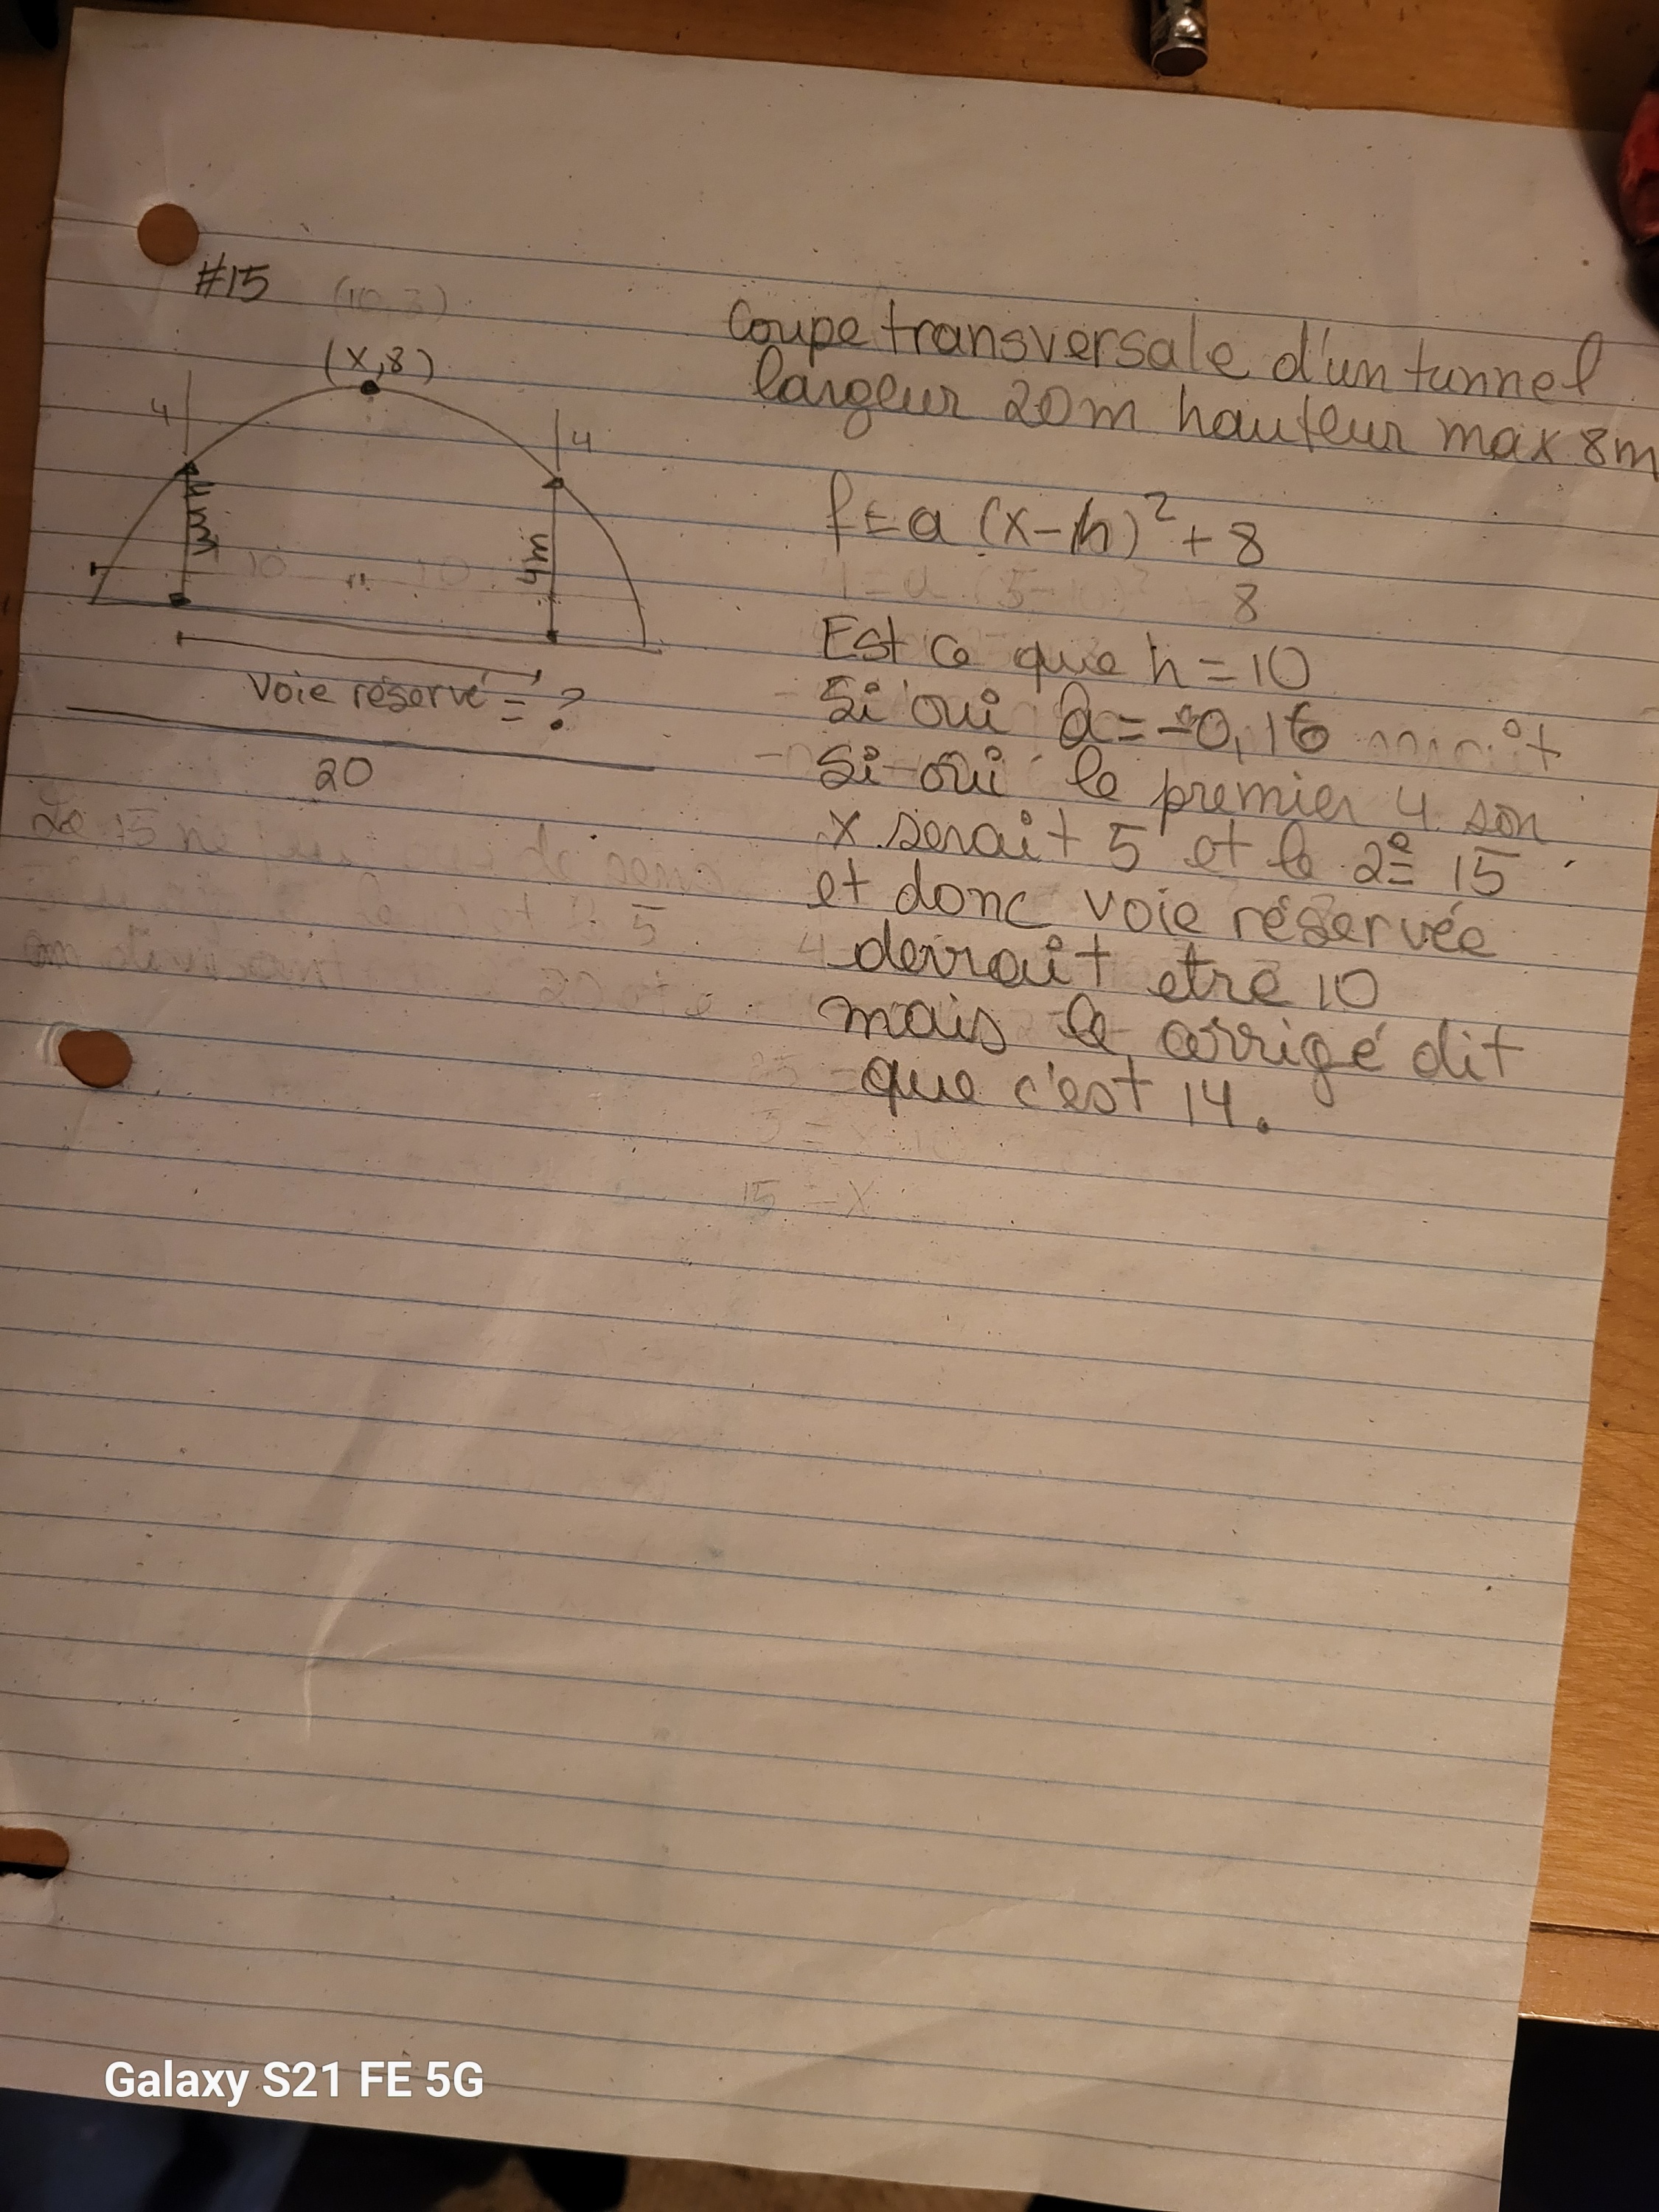 #15 (10,3)
(x,8)
4
4
4m
10 10
voie réservé = ?
20
Coupe transversale d'un tunnel
largeur 20m hauteur max 8m
f = a (x-h)² + 8
8
Est ce que h = 10
Si oui a = -0,16
Si oui le premier 4 son
x serait 5 et le 2e 15
et donc voie réservée
devrait etre 10
mais le corrigé dit
que c'est 14.
15 = x
Galaxy S21 FE 5G